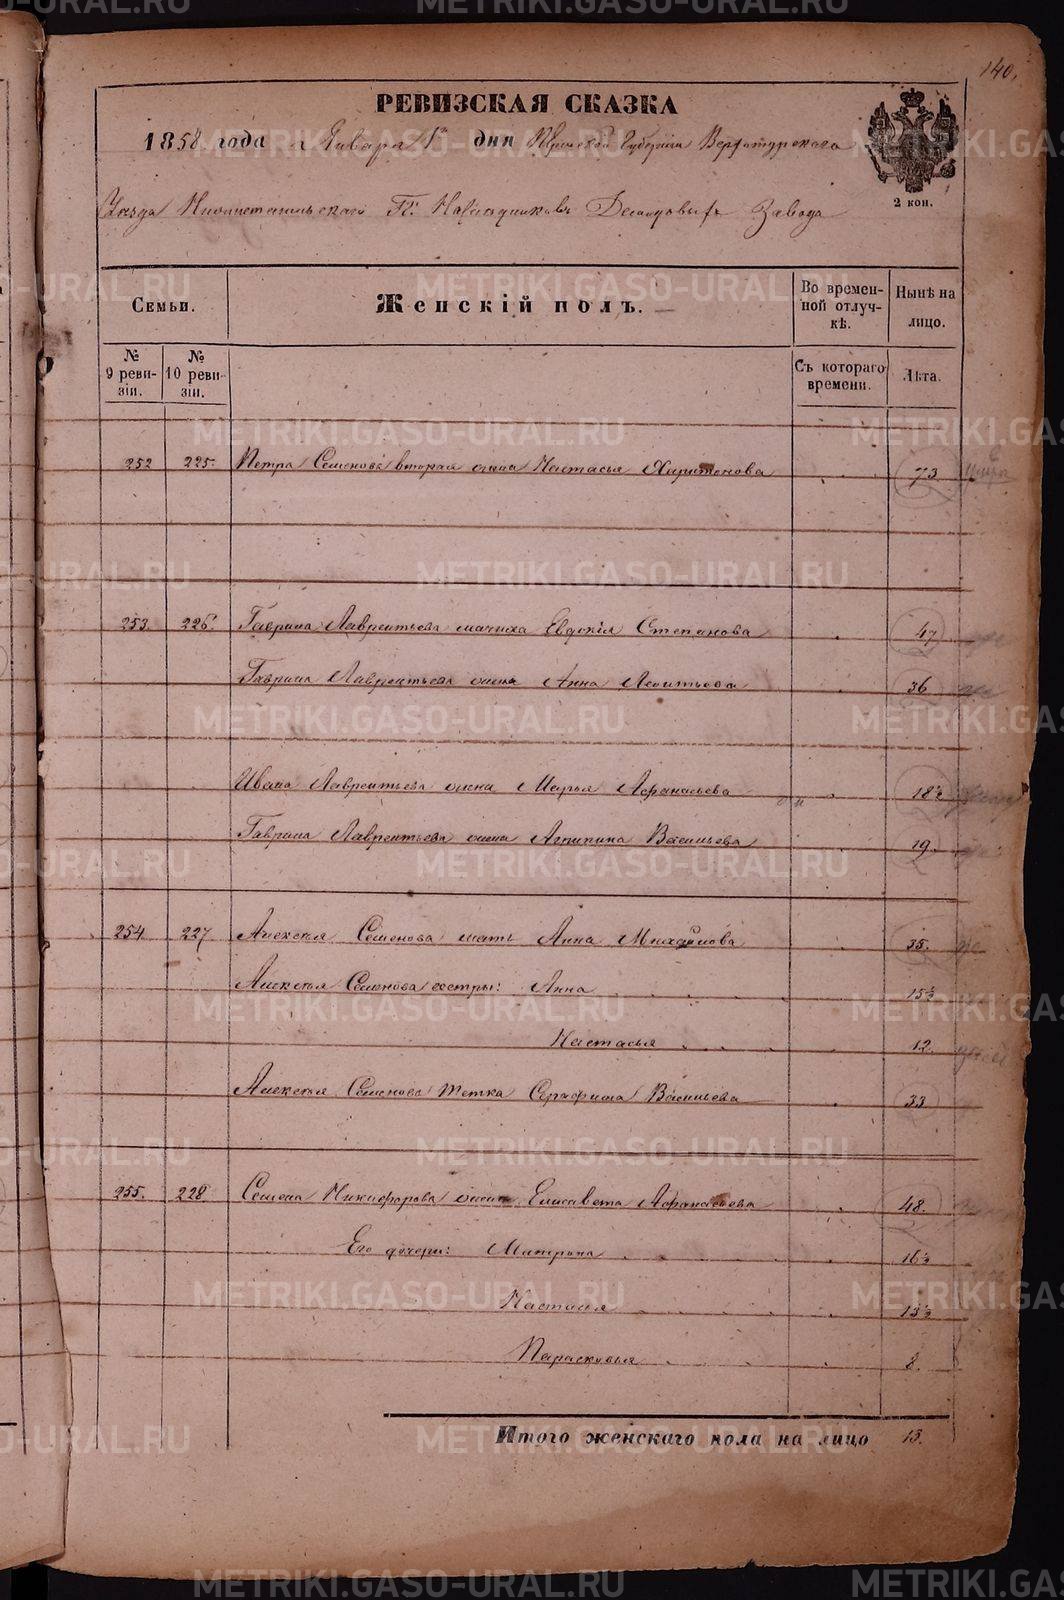 140.
РЕВИЗСКАЯ СКАЗКА
1858 года Января 1го дня Пермской Губернии Верхотурского
Уезда Нижнетагильского Гг. Наследников Демидовых Завода
2 коп.
Семьи.
Женскій полъ.
Во временной отлучкѣ.
Нынѣ на лицо.
№ 9 ревизіи.
№ 10 ревизіи.
Съ котораго времени.
Лѣта.
252 225. Петра Семенова вторая жена Настасья Харитонова 73
253. 226. Гаврила Лаврентьева мачиха Евдокія Степанова 47
Гаврила Лаврентьева жена Анна Леонтьева 36
Ивана Лаврентьева жена Марья Афанасьева 18½
Гаврила Лаврентьева жена Агрипина Васильева 19.
254. 227 Алексея Семенова мать Анна Михайлова 35.
Алексея Семенова сестры: Анна 15½
Настасья 12.
Алексея Семенова тетка Серафима Васильева 33
255. 228 Семена Никифорова жена Елисавета Афанасьева 48.
Его дочери: Матрона 16½
Настасья 13½
Парасковья 8.
Итого женскаго пола на лицо 13.
METRIKI.GASO-URAL.RU